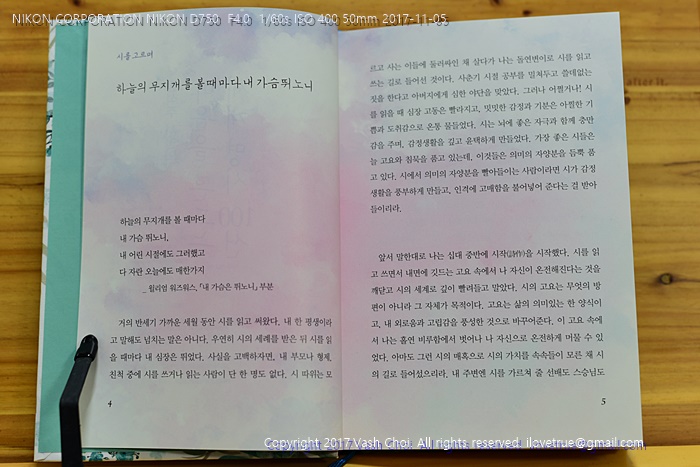 NIKON CORPORATION NIKON D750 F4.0 1/60s ISO 400 50mm 2017-11-05
시를 고르며
하늘의 무지개를 볼 때마다 내 가슴 뛰노니
하늘의 무지개를 볼 때마다
내 가슴 뛰노니,
내 어린 시절에도 그러했고
다 자란 오늘에도 매한가지
_ 윌리엄 워즈워스, 「내 가슴은 뛰노니」 부분
거의 반세기 가까운 세월 동안 시를 읽고 써왔다. 내 한 평생이라
고 말해도 넘치는 말은 아니다. 우연히 시의 세례를 받은 뒤 시를 읽
을 때마다 내 심장은 뛰었다. 사실을 고백하자면, 내 부모나 형제,
친척 중에 시를 쓰거나 읽는 사람이 단 한 명도 없다. 시 따위는 모
4
르고 사는 이들에 둘러싸인 채 살다가 나는 돌연변이로 시를 읽고
쓰는 길로 들어선 것이다. 사춘기 시절 공부를 밀쳐두고 쓸데없는
짓을 한다고 아버지에게 심한 야단을 맞았다. 그러나 어쩔거나! 시
를 읽을 때 심장 고동은 빨라지고, 밋밋한 감정과 기분은 아찔한 기
쁨과 도취감으로 온통 물들었다. 시는 뇌에 좋은 자극과 함께 충만
감을 주며, 감정생활을 깊고 윤택하게 만들었다. 가장 좋은 시들은
늘 고요와 침묵을 품고 있는데, 이것들은 의미의 자양분을 듬뿍 품
고 있다. 시에서 의미의 자양분을 빨아들이는 사람이라면 시가 감정
생활을 풍부하게 만들고, 인격에 고매함을 불어넣어 준다는 걸 받아
들이리라.
앞서 말한대로 나는 십대 중반에 시작(詩作)을 시작했다. 시를 읽
고 쓰면서 내면에 깃드는 고요 속에서 나 자신이 온전해진다는 것을
깨닫고 시의 세계로 깊이 빨려들고 말았다. 시의 고요는 무엇의 방
편이 아니라 그 자체가 목적이다. 고요는 삶의 의미있는 한 양식이
고, 내 외로움과 고립감을 풍성한 것으로 바꾸어준다. 이 고요 속에
서 나는 홀연 비루함에서 벗어나 나 자신으로 온전하게 머물 수 있
었다. 아마도 그런 시의 매혹으로 시의 가치를 속속들이 모른 채 시
의 길로 들어섰으리라. 내 주변엔 시를 가르쳐 줄 선배도 스승님도
5
after it.
Copyright 2017 Vash Choi. All rights reserved. ilovetrue@gmail.com